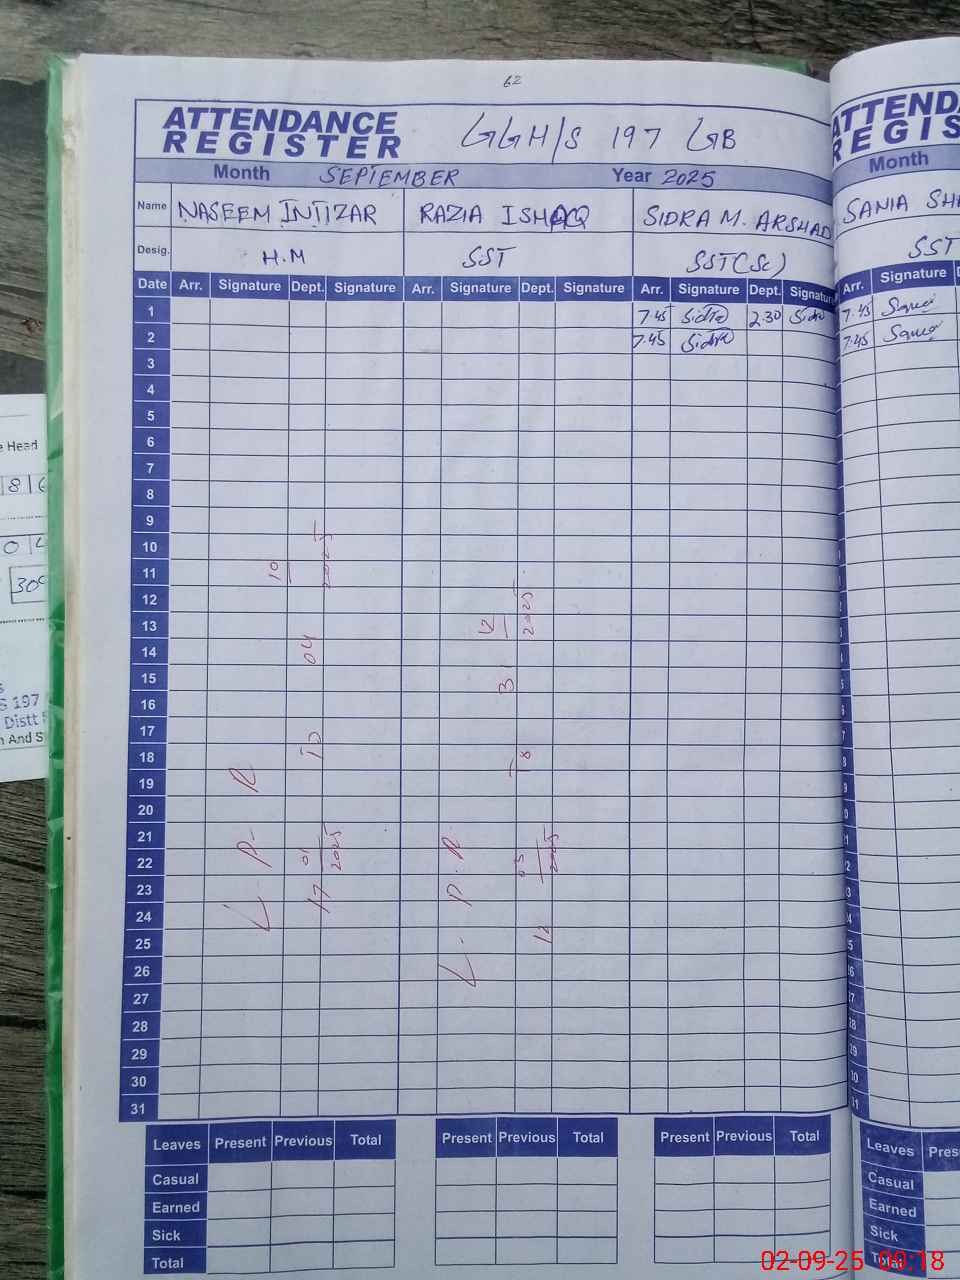 62
ATTENDANCE
REGISTER
GGH/S 197 GB
Month SEPTEMBER Year 2025
Name NASEEM INTIZAR RAZIA ISHAQ SIDRA M. ARSHAD
Desig. H.M SST SST(Sc)
Date Arr. Signature Dept. Signature Arr. Signature Dept. Signature Arr. Signature Dept. Signature
1 7.45 Sidra 2.30 Sidra
2 7.45 Sidra
3
4
5
6
7
8
9
10
11
12
13
14
15
16
17
18
19
20
21
22
23
24
25
26
27
28
29
30
31
L. P. R
17 01 2025 TO 04 10 2025
L. P. R.
12 05 2025 To 31 12 2025
Leaves Present Previous Total Present Previous Total Present Previous Total
Casual
Earned
Sick
Total
ATTEND
REGIS
Month
SANIA SH
SST
Arr. Signature
7.45
7.45
Leaves Pres
Casual
Earned
Sick
Total
e Head
8
0 4
30
S 197
Distt
n And S
02-09-25 09:18